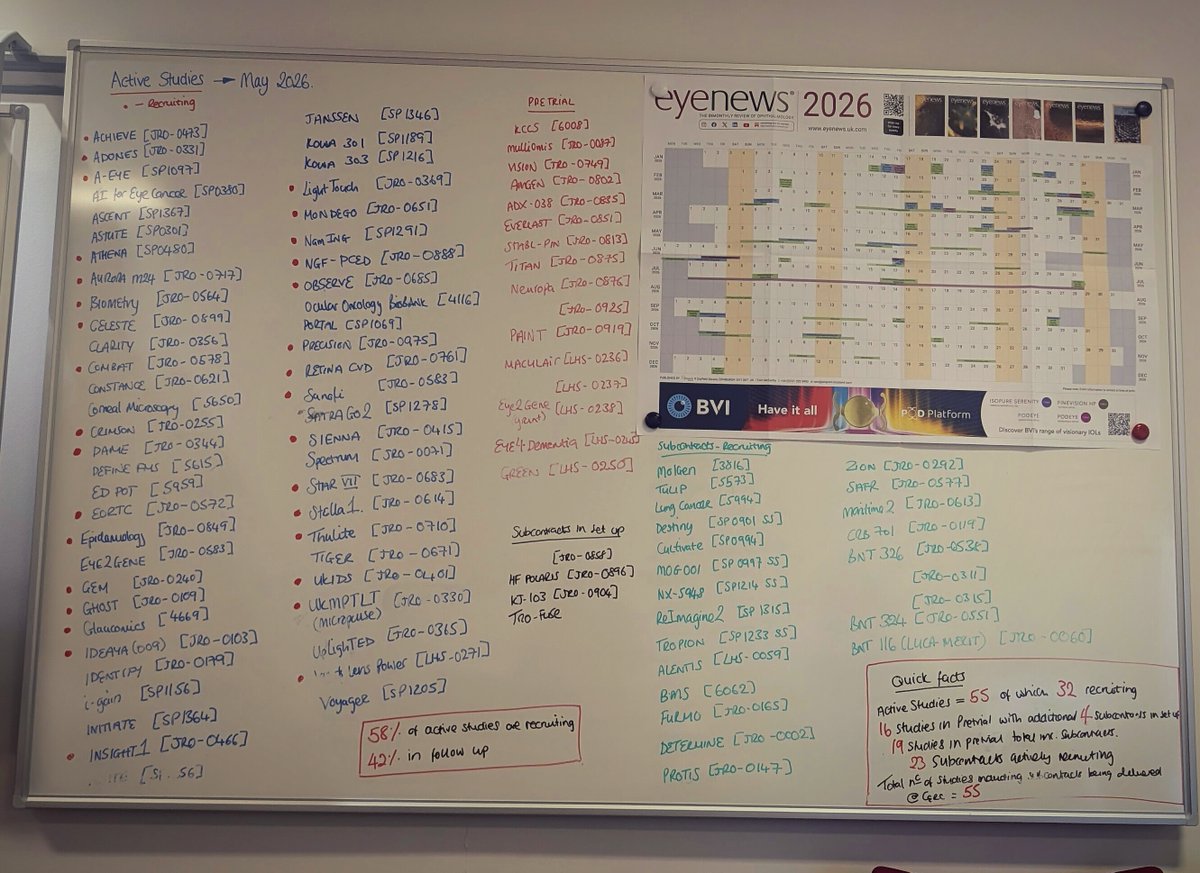 Active Studies → May 2026.
• - Recruiting
• ACHIEVE [JRO-0473]
• ADONES [JRO-0331]
• A-EYE [SP1097]
AI for Eye Cancer [SP0380]
ASCENT [SP1367]
ASTUTE [SP0301]
• ATHENA [SP0480]
• AURORA M24 [JRO-0717]
• Biometry [JRO-0564]
• CELESTE [JRO-0899]
CLARITY [JRO-0356]
• COMBAT [JRO-0578]
CONSTANCE [JRO-0621]
Corneal Microscopy [5650]
• CRIMSON [JRO-0255]
• DAME [JRO-0344]
DEFINE FHS [5615]
ED POT [5959]
• EORTC [JRO-0572]
• Epidemiology [JRO-0849]
EYE2GENE [JRO-0583]
• GEM [JRO-0240]
• GHOST [JRO-0109]
• Glauconics [4669]
• IDEAYA (009) [JRO-0103]
IDENTIFY [JRO-0179]
i-gain [SP1156]
INITIATE [SP1364]
• INSIGHT 1 [JRO-0466]
JANSSEN [SP1346]
KOWA 301 [SP1189]
KOWA 303 [SP1216]
• Light Touch [JRO-0369]
• MONDEGO [JRO-0651]
• NamING [SP1291]
• NGF-PCED [JRO-0888]
• OBSERVE [JRO-0685]
Ocular Oncology Biobank [4116]
PORTAL [SP1069]
• PRECISION [JRO-0975]
• RETINA CVD [JRO-0761]
• Sanofi [JRO-0583]
SATRAGO 2 [SP1278]
• SIENNA [JRO-0415]
Spectrum [JRO-0071]
• STAR VII [JRO-0683]
• Stella 1. [JRO-0614]
• Thulite [JRO-0710]
TIGER [JRO-0671]
• UKIDS [JRO-0401]
• UKMPTLT [JRO-0330]
(micropulse)
UpLighTED [JRO-0365]
• Lens Power [LHS-0271]
Voyager [SP1205]
58% of active studies are recruiting
42% in follow up
PRETRIAL
KCCS [6008]
mulliomis [JRO-0087]
VISION [JRO-0749]
AMGEN [JRO-0802]
ADX-038 [JRO-0835]
EVERLAST [JRO-0851]
STABL-PIN [JRO-0813]
TITAN [JRO-0875]
Neuropa [JRO-0876]
[JRO-0925]
PAINT [JRO-0919]
MACULAIR [LHS-0236]
[LHS-0237]
Eye2Gene [LHS-0238]
grant)
EYE4 Dementia
GREEN [LHS-0250]
Subcontracts in set up
[JRO-0858]
HF POLARIS [JRO-0896]
KJ-103 [JRO-0904]
TRO-FUSE
eyenews 2026
THE BIMONTHLY REVIEW OF OPHTHALMOLOGY
www.eyenews.uk.com
BVI Have it all POD Platform
ISOPURE SERENITY FINEVISION HP
PODEYE PODEYE
Discover BVI's range of visionary IOLs
Subcontracts - Recruiting
Molgen [3816]
TULIP [5573]
Lung Cancer [5994]
Destiny [SP0901 SS]
Cultivate [SP0994]
MOG001 [SP0997 SS]
NX-5948 [SP1214 SS]
ReImagine2 [SP1315]
TROPION [SP1233 SS]
ALENTIS [LHS-0059]
BIMS [6062]
FURMO [JRO-0165]
DETERMINE [JRO-0002]
PROTIS [JRO-0147]
ZION [JRO-0292]
SAFR [JRO-0577]
Maritime 2 [JRO-0613]
CRB 701 [JRO-0119]
BNT 326 [JRO-0538]
[JRO-0311]
[JRO-0315]
BNT 324 [JRO-0551]
BNT 116 (LUCA MERIT) [JRO-0060]
Quick facts
Active Studies = 55 of which 32 recruiting
16 studies in Pretrial with additional 4 subcontracts in set up
19 studies in pretrial total inc. subcontracts.
23 Subcontracts actively recruiting
Total no of studies including contracts being delivered
@ CRC = 55